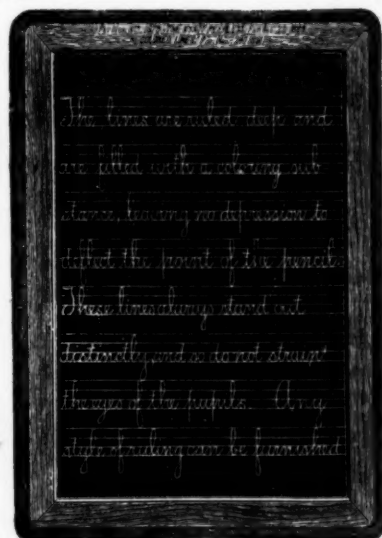 The lines are ruled deep and
are filled with a coloring sub
stance, leaving no depression to
deflect the point of the pencils
These lines always stand out
distinctly and so do not strain
the eyes of the pupils. Any
style of ruling can be furnished